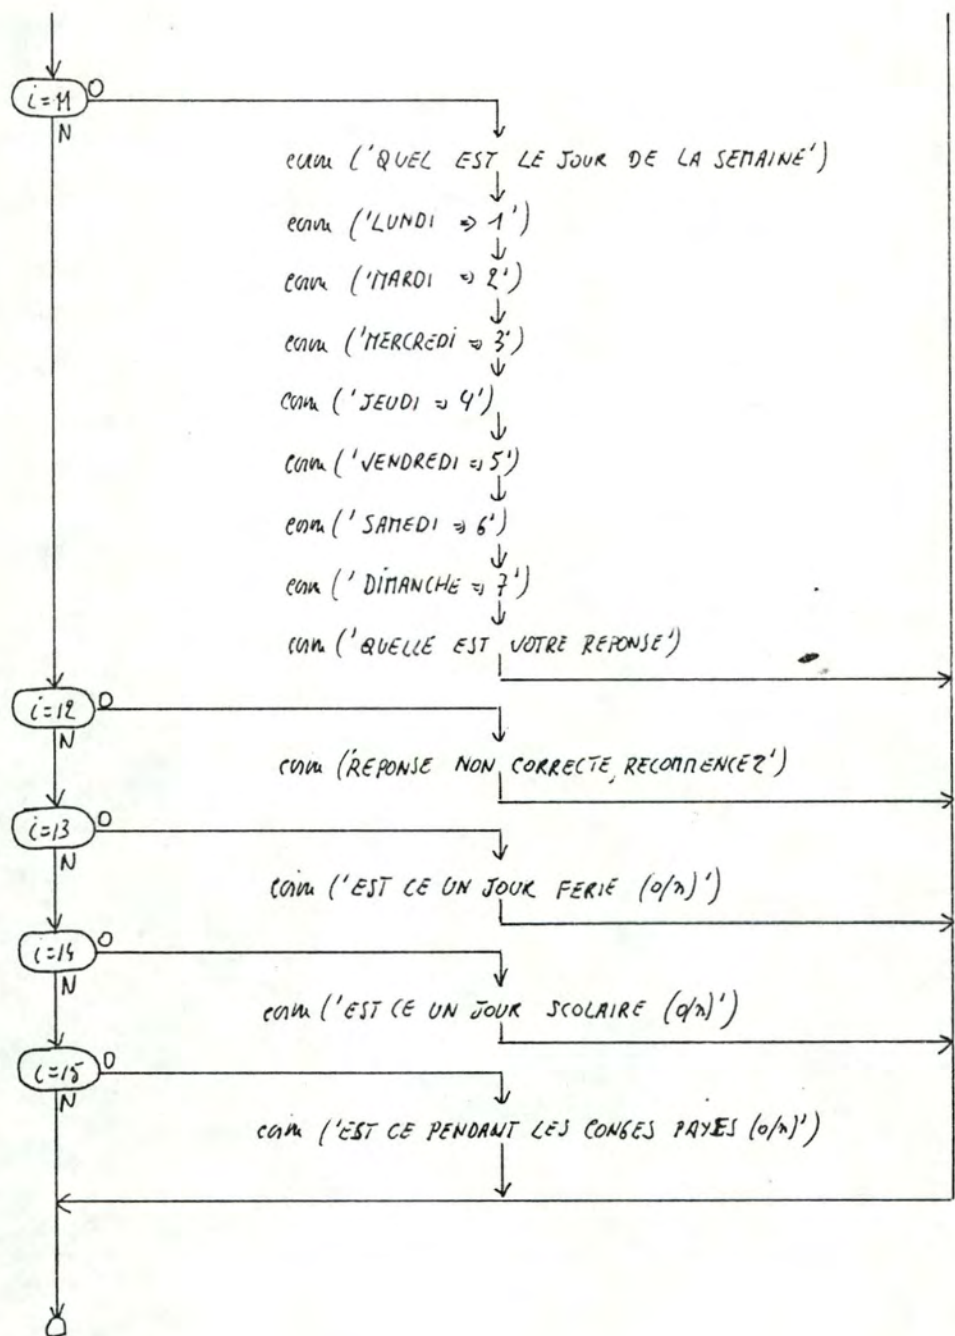 i=11 O
N
ecrire ('QUEL EST LE JOUR DE LA SEMAINE')
ecrire ('LUNDI => 1')
ecrire ('MARDI => 2')
ecrire ('MERCREDI => 3')
ecrire ('JEUDI => 4')
ecrire ('VENDREDI => 5')
ecrire ('SAMEDI => 6')
ecrire ('DIMANCHE => 7')
ecrire ('QUELLE EST VOTRE REPONSE')
i=12 O
N
ecrire ('REPONSE NON CORRECTE, RECOMMENCEZ')
i=13 O
N
ecrire ('EST CE UN JOUR FERIE (o/n)')
i=14 O
N
ecrire ('EST CE UN JOUR SCOLAIRE (o/n)')
i=15 O
N
ecrire ('EST CE PENDANT LES CONGES PAYES (o/n)')